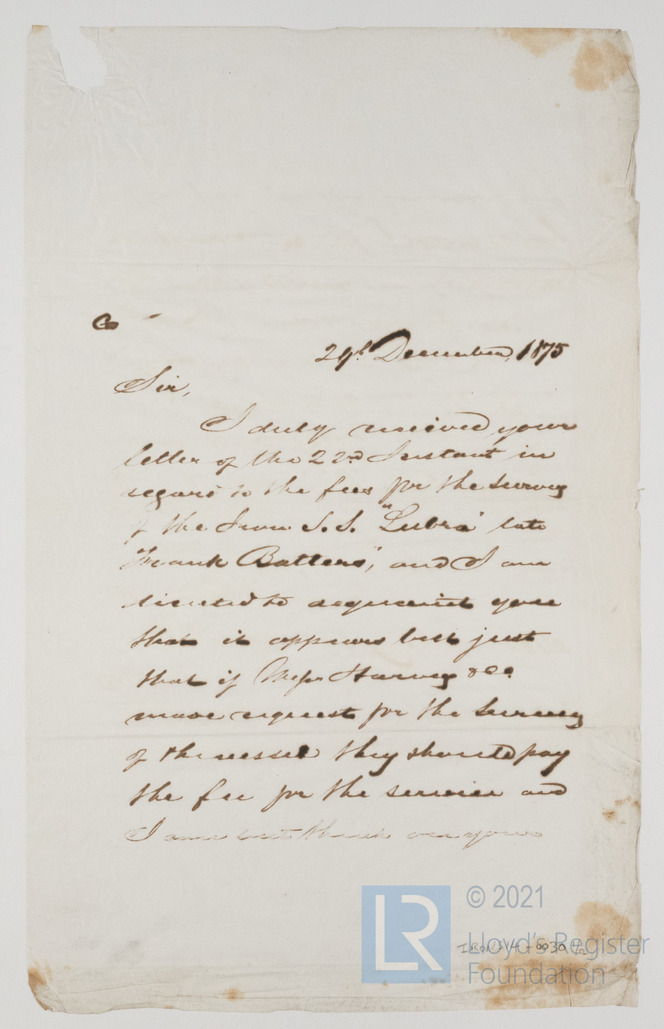 29th December, 1875
Sir,
I duly received your
letter of the 22nd Instant in
regard to the fees for the survey
of the Iron S.S. "Lubra" late
"Frank Batters", and I am
directed to acquaint you
that it appears but just
that if Messrs Harvey & Co
made request for the Survey
of the vessel they should pay
the fee for the service and
I am
© 2021
LR
Lloyd's Register
Foundation